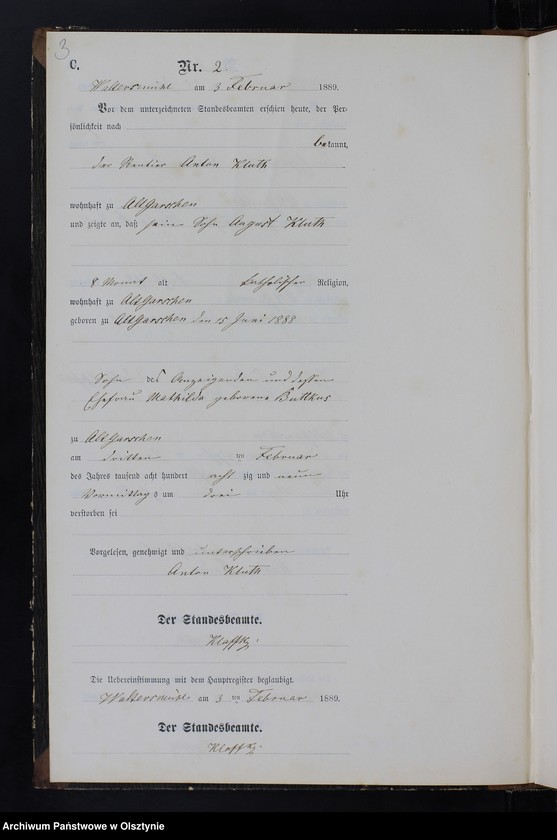 3
C. Nr. 2.
Waltersmühl am 3 Februar 1889.
Vor dem unterzeichneten Standesbeamten erschien heute, der Per-
sönlichkeit nach
bekannt,
der Rentier Anton Kluth
wohnhaft zu Altgarschen
und zeigte an, daß sein Sohn August Kluth
8 Monat alt katholischer Religion,
wohnhaft zu Altgarschen
geboren zu Altgarschen den 15 Juni 1888
Sohn des Anzeigenden und dessen
Ehefrau Mathilda geborene Buttkus
zu Altgarschen
am dritten ten Februar
des Jahres tausend acht hundert acht zig und neun
Vormittags um drei Uhr
verstorben sei
Vorgelesen, genehmigt und unterschrieben
Anton Kluth
Der Standesbeamte.
Klaffky.
Die Uebereinstimmung mit dem Hauptregister beglaubigt.
Waltersmühl am 3 ten Februar 1889.
Der Standesbeamte.
Klaffky.
Archiwum Państwowe w Olsztynie